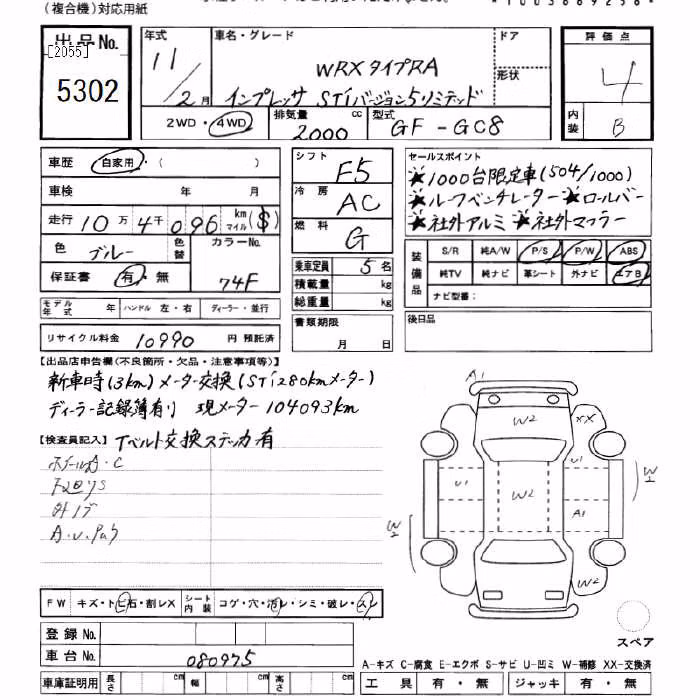 (複合機)対応用紙
出品No.
[2055]
5302
年式
11/2月
車名・グレード
WRXタイプRA
インプレッサ STiバージョン5リミテッド
ドア
形状
評価点
4
内装
B
2WD・4WD
排気量
2000 cc
型式
GF-GC8
車歴 自家用・( )
車検 年 月
走行 10万4千096 km マイル ($)
色 ブルー 色替 カラーNo. 74F
保証書 有・無
モデル年式 年 ハンドル 左・右 ディーラー・並行
リサイクル料金 10990 円 預託済
シフト F5
冷房 AC
燃料 G
乗車定員 5 名
積載量 kg
総重量 kg
書類期限
月 日
セールスポイント
★1000台限定車(504/1000)
★ルーフベンチレーター ★ロールバー
★社外アルミ ★社外マフラー
装備品
S/R 純A/W P/S P/W ABS
純TV 純ナビ 革シート 外ナビ エアB
ナビ型番:
後日品
【出品店申告欄(不良箇所・欠品・注意事項等)】
新車時(3km)メーター交換(STi280kmメーター)
ディーラー記録簿有り 現メーター104093km
【検査員記入】 Tベルト交換ステッカ有
ホイールA・C
下廻りS
A1
W2
XX
U1
U1
W2
A1
W1
W2
W2
FW キズ・トビ石・割レX シート内装 コゲ・穴・汚レ・シミ・破レ・スレ
登録No.
車台No. 080975
車庫証明用 長さ cm 幅 cm 高さ cm
スペア
A-キズ C-腐食 E-エクボ S-サビ U-凹ミ W-補修 XX-交換済
工具 有・無 ジャッキ 有・無